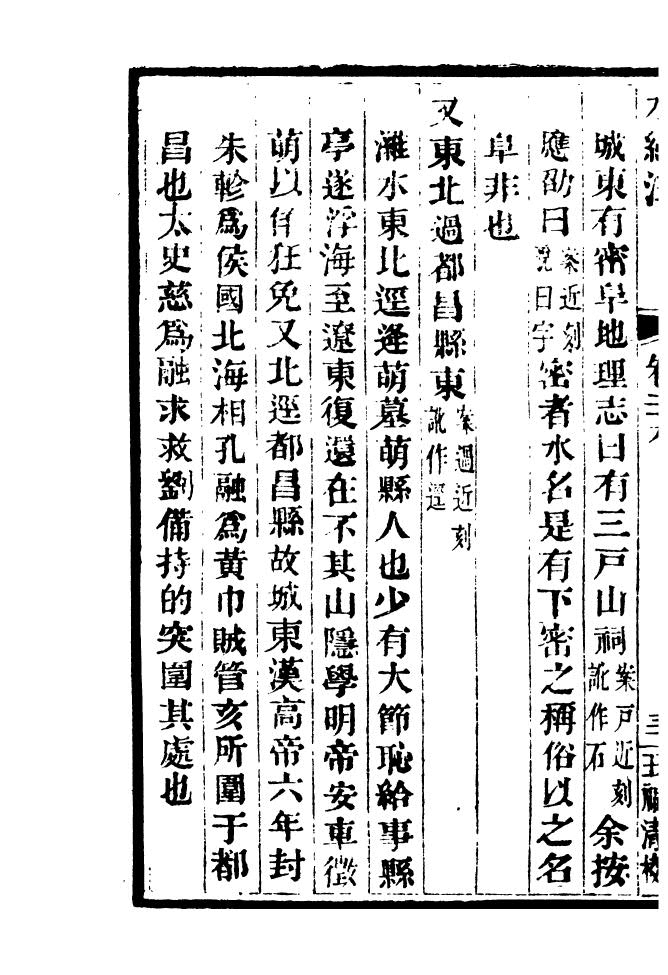 水經注 卷二六 福清校
城東有密阜地理志曰有三戸山祠案戸近刻訛作石余按
應劭曰案近刻說曰字密者水名是有下密之稱俗以之名
阜非也
又東北過都昌縣東案過近刻訛作逕
濰水東北逕逄萌墓萌縣人也少有大節恥給事縣
亭遂浮海至遼東復還在不其山隱學明帝安車徵
萌以佯狂免又北逕都昌縣故城東漢高帝六年封
朱軫爲侯國北海相孔融爲黃巾賊管亥所圍于都
昌也太史慈爲融求救劉備持的突圍其處也